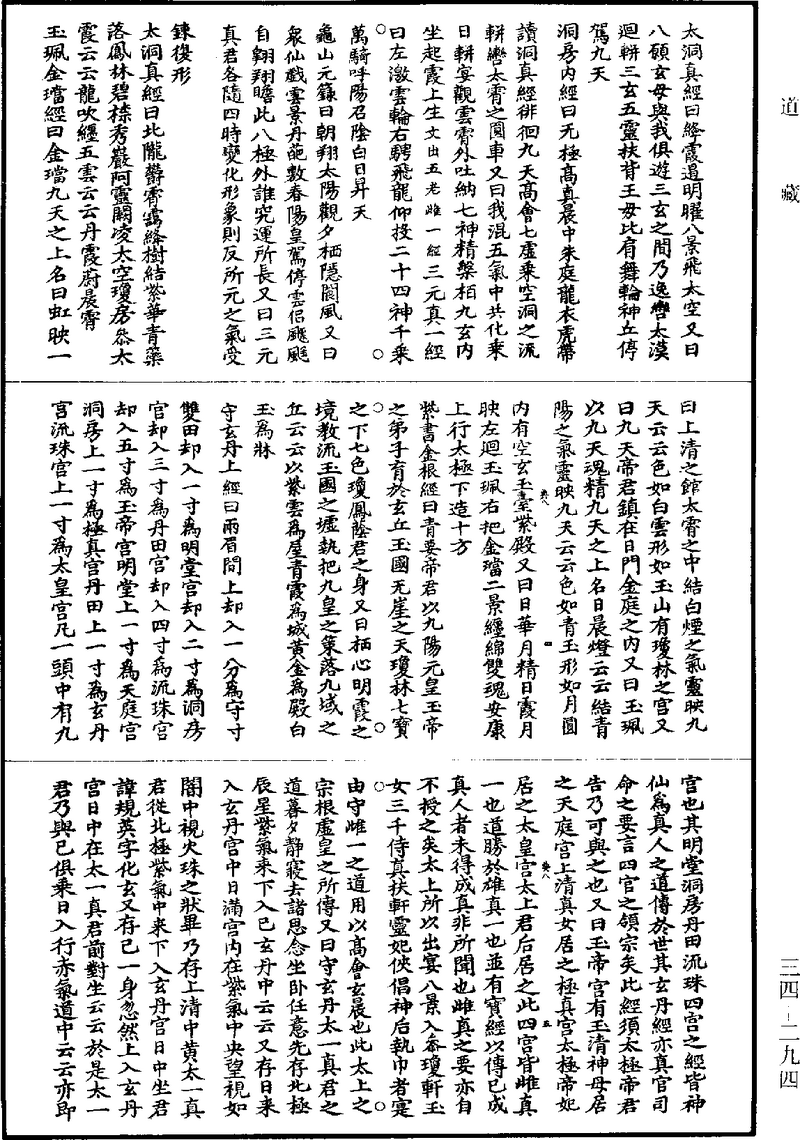 道藏
太洞真經曰絳霞過明曜八景飛太空又曰
八願玄母與我俱遊三玄之間乃逸轡太漠
迴輧三玄五靈扶苷王母比肩舞輪神丘停
駕九天
洞房内經曰无極高真晨中朱庭龍衣虎帶
讀洞真經徘徊九天高會七虛乘空洞之流
輧轡太霄之圓車又曰我混五氣中共化乘
日輧宴觀雲霄外吐納七神精槃栢九玄内
坐起霞上生文出五老雌一經三元真一經
曰左激雲輪右騁飛龍仰投二十四神千乘
萬騎呼陽召陰白日昇天
龜山元籙曰朝翔太陽觀夕栖隱閬風又曰
衆仙戲雲景丹葩敷春陽皇駕停雲侣飈飈
自翱翔瞻此八極外誰究運所長又曰三元
真君各隨四時變化形象則反所元之氣受
鍊復形
太洞真經曰北隴欝霄靄絳樹結紫華青藥
落鳳林碧㯕秀巖阿靈闕凌太空瓊房叅太
霞云云龍吹纏五雲云云丹霞蔚晨霄
玉珮金璫經曰金璫九天之上名曰虹映一
曰上清之館太霄之中結白煙之氣靈映九
天云云色如白雲形如玉山有瓊林之宫又
曰九天帝君鎮在日門金庭之内又曰玉珮
以九天魂精九天之上名曰晨燈云云結青
陽之氣靈映九天云云色如青玉形如月圓
内有空玄玉臺紫殿又曰日華月精日霞月
映左迴玉珮右把金璫二景纏綿雙魂安康
上行太極下造十方
紫書金根經曰青要帝君以九陽元皇玉帝
之弟子育於玄丘玉國无崖之天瓊林七寶
之下七色瓊鳳蔭君之身又曰栖心明霞之
境教流玉國之墟執把九皇之策落九域之
丘云云以紫雲爲屋青霞爲城黄金爲殿白
玉爲牀
守玄丹上經曰兩眉間上却入一分爲守寸
雙田却入一寸爲明堂宫却入二寸爲洞房
宫却入三寸爲丹田宫却入四寸爲流珠宫
却入五寸爲玉帝宫明堂上一寸爲天庭宫
洞房上一寸爲極真宫丹田上一寸爲玄丹
宫流珠宫上一寸爲太皇宫凡一頭中有九
宫也其明堂洞房丹田流珠四宫之經皆神
仙爲真人之道傳於世其玄丹經亦真官司
命之要言四宫之領宗矣此經須太極帝君
告乃可與之也又曰玉帝宫有玉清神母居
之天庭宫上清真女居之極真宫太極帝妃
居之太皇宫太上君后居之此四宫皆雌真
一也道勝於雄真一也並有寶經以傳已成
真人者未得成真非所聞也雌真之要亦自
不授之矣太上所以出宴八景入㕘瓊軒玉
女三千侍真扶軒靈妃俠倡神后執巾者寔
由守雌一之道用以高會玄晨也此太上之
宗根虛皇之所傳又曰守玄丹太一真君之
道暮夕静寢去諸思念坐卧任意先存北極
辰星紫氣来下入已玄丹中云云又存日来
入玄丹宫中日滿宫内在紫氣中央望視如
闇中視火珠之狀畢乃存上清中黄太一真
君從北極紫氣中来下入玄丹宫日中坐君
諱規英字化玄又存己一身忽然上入玄丹
宫日中在太一真君前對坐云云於是太一
君乃與己俱乘日入行赤氣道中云云亦即
三四-二九四